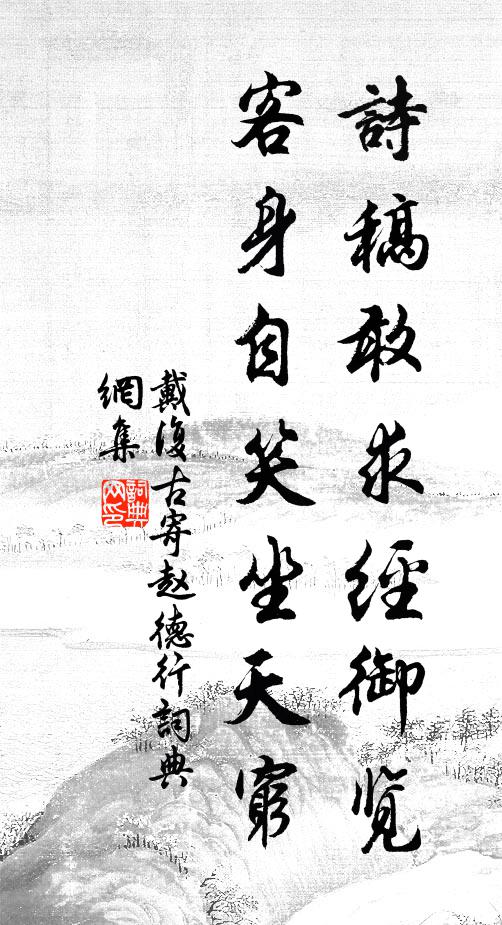 詩稿敢求經御覽
客身自笑坐天窮
戴復古寄赵德行詞典
網集
詞典网印